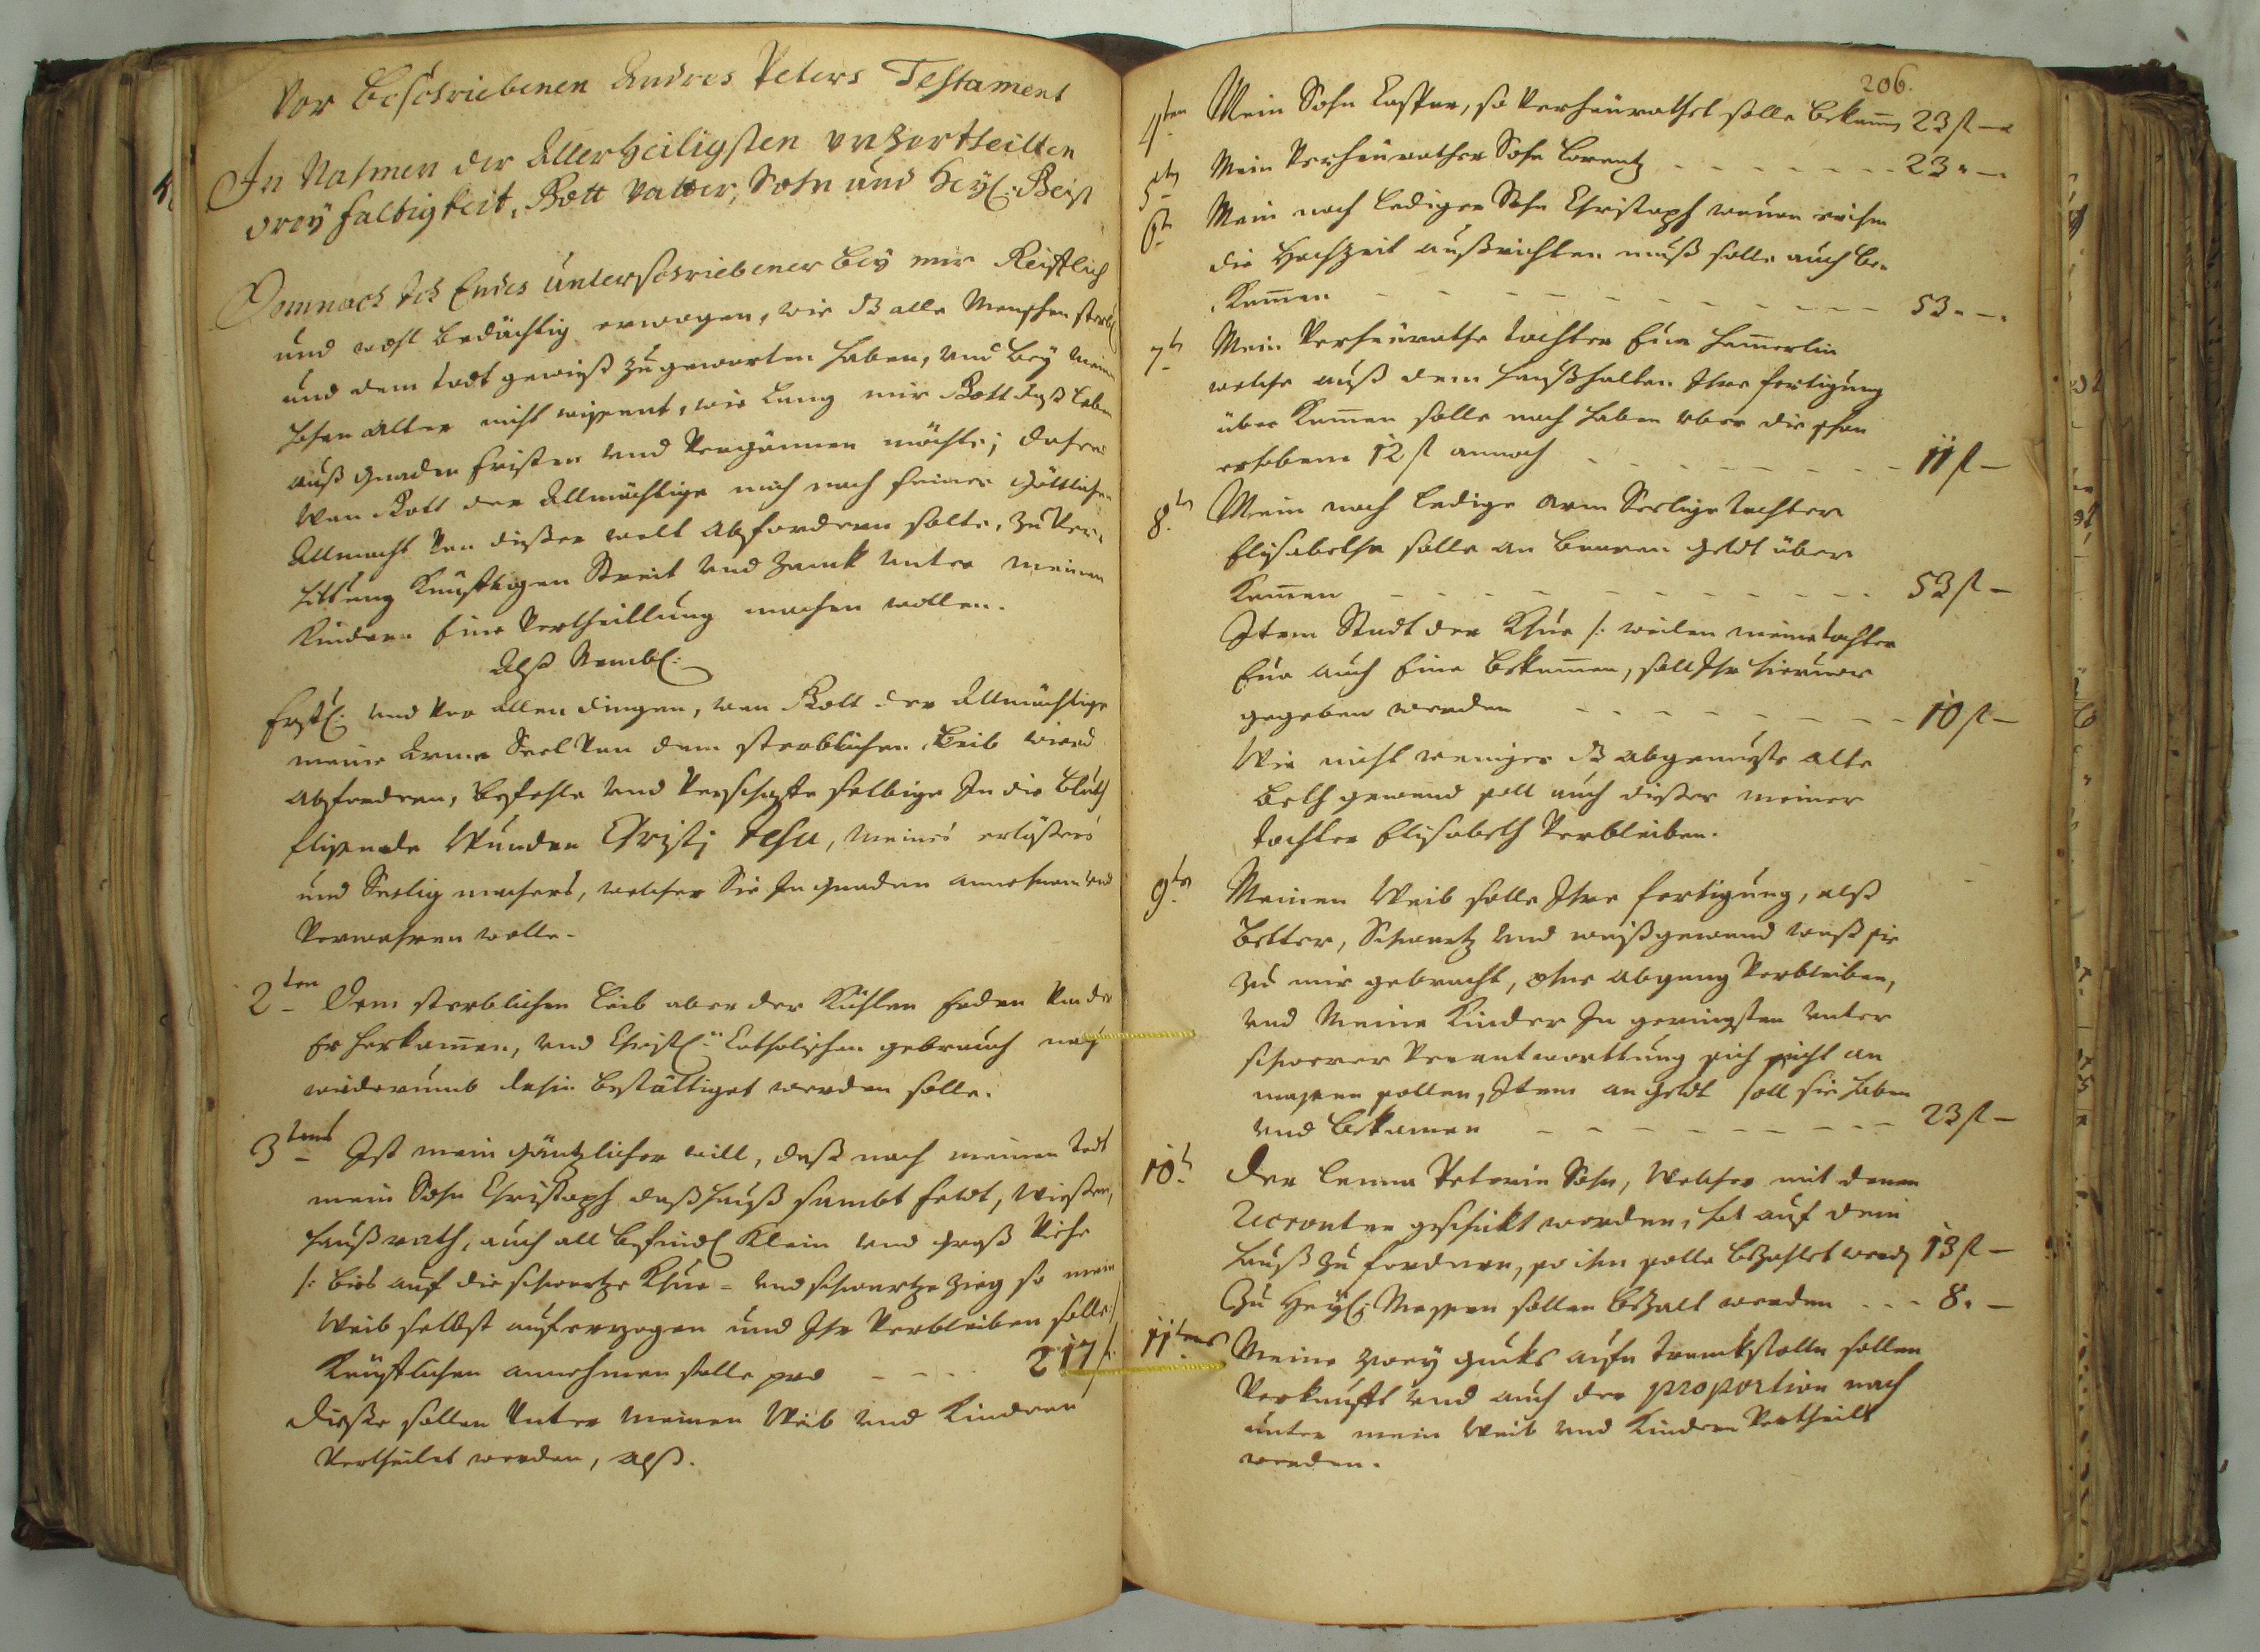 Vor Beschriebenen Andres Peters Testament
In Nahmen der Allerheiligsten vnzertheilten
dreÿfaltigkeit, Gott Vatter, Sohn und Heÿl: Geist
Demnach Ich Endes Unterschriebener beÿ mir Reifflich
und wohl bedächtig erwogen, wie dz alle Menschen sterbl
und dem todt gewiß zu gewarten haben, vnd beÿ meinen
hohen alter nicht wissent, wie lang mir Gott daß leben
auß gnaden fristen vnd Vergönnen möchte; dahero
Wan Gott der Allmächtige mich nach seiner göttlichen
Allmacht Von dießer welt abfordern solte, zu Ver-
hittung Künfftigen Streit vnd Zanck vnter meinen
Kindern Eine Vertheillung machen wollen.
Alß Nembl:
Erstl: vnd Vor allen dingen, wan Gott der Allmächtige
meine Arme Seel Von dem sterblichen Leib wird
abfordern, befehle vnd Verschaffe selbige In die bluth
flissende Wunden Christi Jesu, meines erlößers
und Seelig machers, welcher Sie In gnaden annehmen vnd
Verwahren wolle.
2ten Dem sterblichen leib aber der Kühlen Erden Von der
Er herkom̅en, vnd Christl: Catholischen gebrauch nach
widerumb dahin bestättiget werden solle.
3tens Ist mein gäntzlicher will, daß nach meinen todt
mein Sohn Christoph daß hauß sambt feldt, wießen,
haußrath, auch all befindl Klein vnd groß Viehe
/: bies auf die schwartze Khue = vnd schwartze Zieg so mein
Weib selbst auferzogen und Ihr Verbleiben solle :/
Kaüfflichen annehmen solle pro - - - 217 f.
dieße sollen Vnter meinen Weib vnd Kindern
Vertheilet werden, alß.
206.
4ten Mein Sohn Casper, so Verheürathet solle bekom̅en 23 f —
5ten Mein Verheürather Sohn Lorentz - - - - - - 23 " —
6t Mein noch lediger Sohn Christoph weillen
die Hochzeit außrichten muß solle auch be-
Kom̅en - - - - - - - - - - 53 " —
7t Mein Verheürathe tochter Eua
welche auß dem haußhalten Ihre fertigung
über Kom̅en solle noch haben vber die schon
erhobene 12 f annoch - - - - - - - 11 f —
8t Mein noch ledige arm Seelige tochter
Elisabetha solle an baaren geldt über
Kom̅en - - - - - - - - - 53 f —
Item Stadt der Khue /: weilen meine tochter
Eua auch Eine bekom̅en, soll Ihr hieruor
gegeben werden - - - - - - - - 10 f —
Wie nicht weniger dz abgenutzte alte
beth gewand soll auch dießer meiner
tochter Elisabeth Verbleiben.
9ts Meinen Weib solle Ihre fertigung, alß
better, Schwartz vnd weißgewand waß sie
zu mir gebracht, ohne abgang Verbleiben,
vnd Meine Kinder In geringsten vnter
schwerer Verantworttung sich nicht an
massen sollen, Item an geldt soll sie haben
vnd bekomen - - - - - - - - - 23 f —
10t Der Peterin Sohn, Welcher mit denen
Recrouten geschickt worden, hat auf dem
hauß zu fordern, so ihm solle bezahlet werden 13 f —
Zu Heÿl: Messen sollen bezalt werden - - - 8 " —
11tens Meine zweÿ sollen
Verkaufft vnd auch der proportion nach
unter mein Weib vnd Kindern Vertheilt
werden.